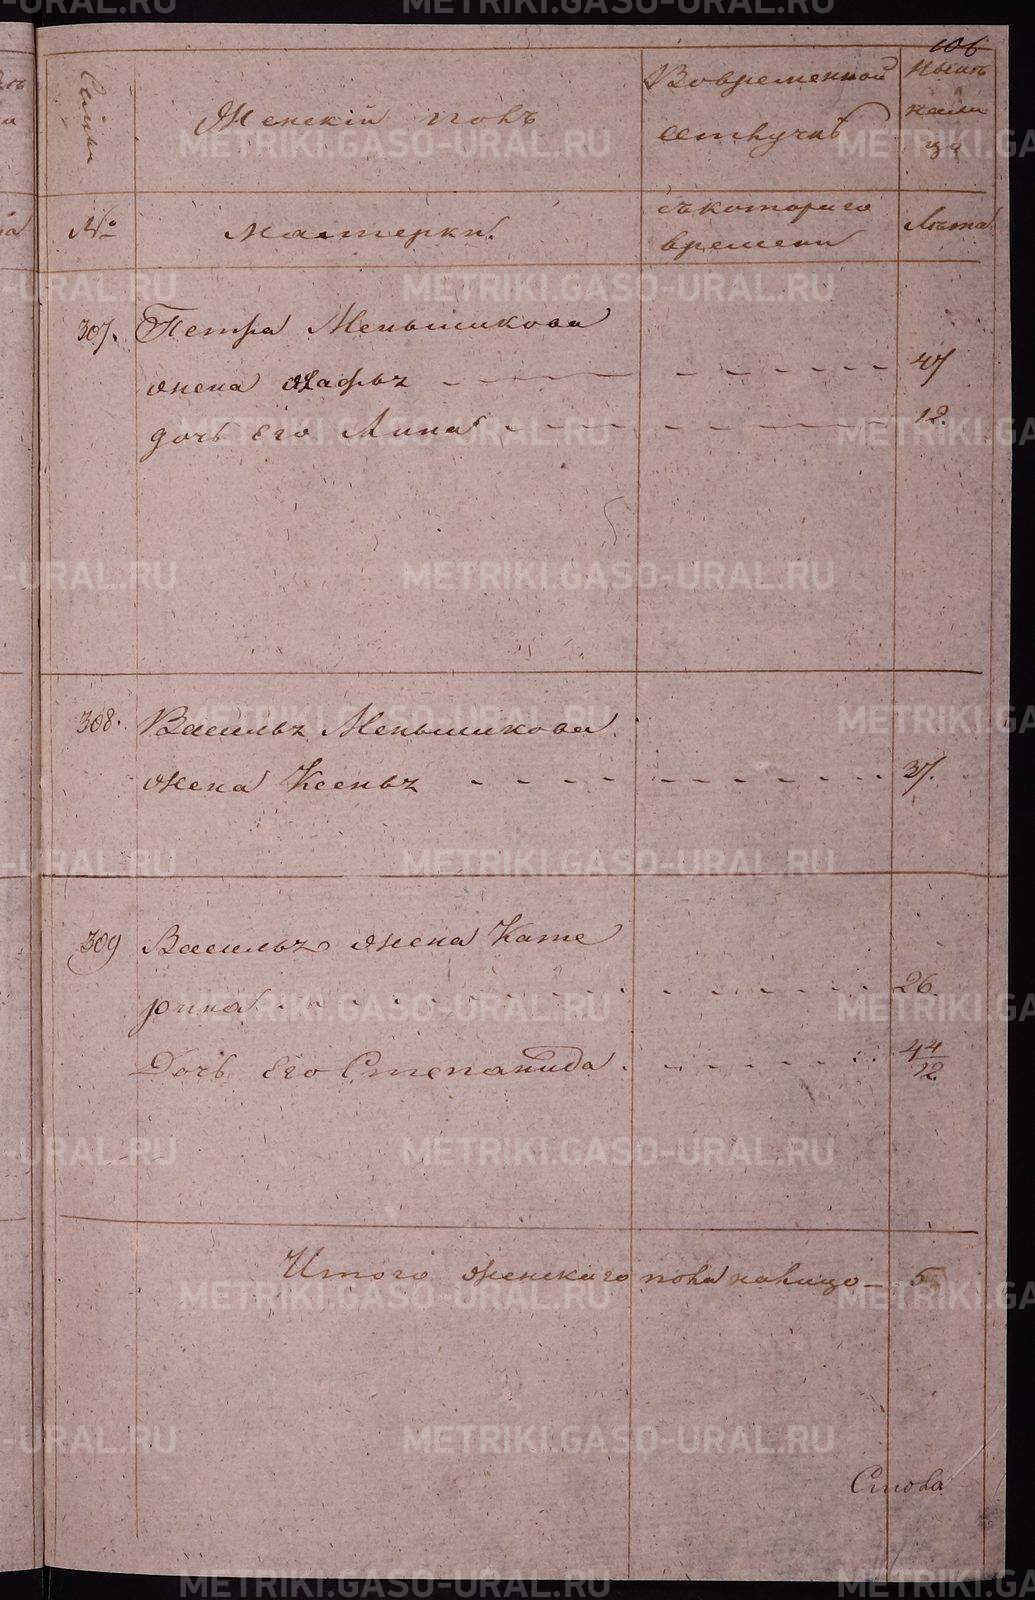 106
Семьи
Женскій полъ
Вовременной
отлучкѣ
Нынѣ
нали
цо
№
Мастерки.
съкотораго
времени
Лѣта
307.
Петра Меньшикова
жена Агафья
47
дочь Его Анна
12.
308.
Василья Меньшикова
жена Ксенья
37.
309
Василья жена Кате
рина
26.
Дочь Его Степанида.
4 4/12
Итого женскаго пола налицо
5
METRIKI.GASO-URAL.RU